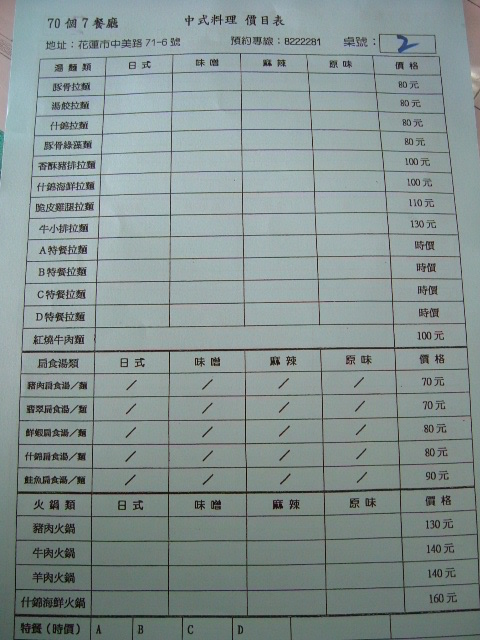 70個7餐廳 中式料理 價目表
地址：花蓮市中美路71-6號 預約專線：8222281 桌號： 2
湯麵類 日式 味噌 麻辣 原味 價格
豚骨拉麵 80元
湯餃拉麵 80元
什錦拉麵 80元
豚骨綠藻麵 80元
香酥豬排拉麵 100元
什錦海鮮拉麵 100元
脆皮雞腿拉麵 110元
牛小排拉麵 130元
A特餐拉麵 時價
B特餐拉麵 時價
C特餐拉麵 時價
D特餐拉麵 時價
紅燒牛肉麵 100元
扁食湯類 日式 味噌 麻辣 原味 價格
豬肉扁食湯／麵 ／ ／ ／ ／ 70元
翡翠扁食湯／麵 ／ ／ ／ ／ 70元
鮮蝦扁食湯／麵 ／ ／ ／ ／ 80元
什錦扁食湯／麵 ／ ／ ／ ／ 80元
鮭魚扁食湯／麵 ／ ／ ／ ／ 90元
火鍋類 日式 味噌 麻辣 原味 價格
豬肉火鍋 130元
牛肉火鍋 140元
羊肉火鍋 140元
什錦海鮮火鍋 160元
特餐（時價） A B C D